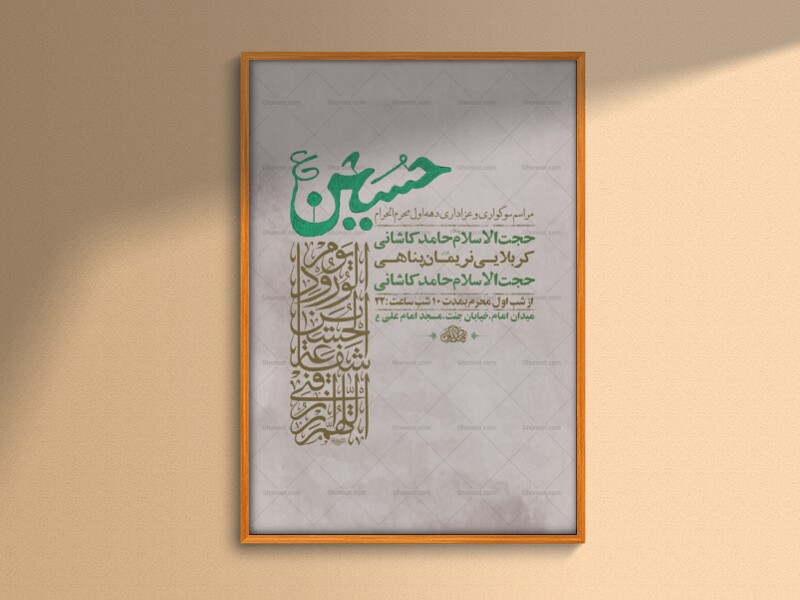 حسین ع
مراسم سوگواری و عزاداری دهه اول محرم الحرام
حجت الاسلام حامد کاشانی
کربلایی نریمان پناهی
حجت الاسلام حامد کاشانی
از شب اول محرم بمدت ۱۰ شب ساعت: ۲۲
میدان امام، خیابان جنت، مسجد امام علی ع
اللهم ارزقنی
شفاعة
الحسین
یوم الورود